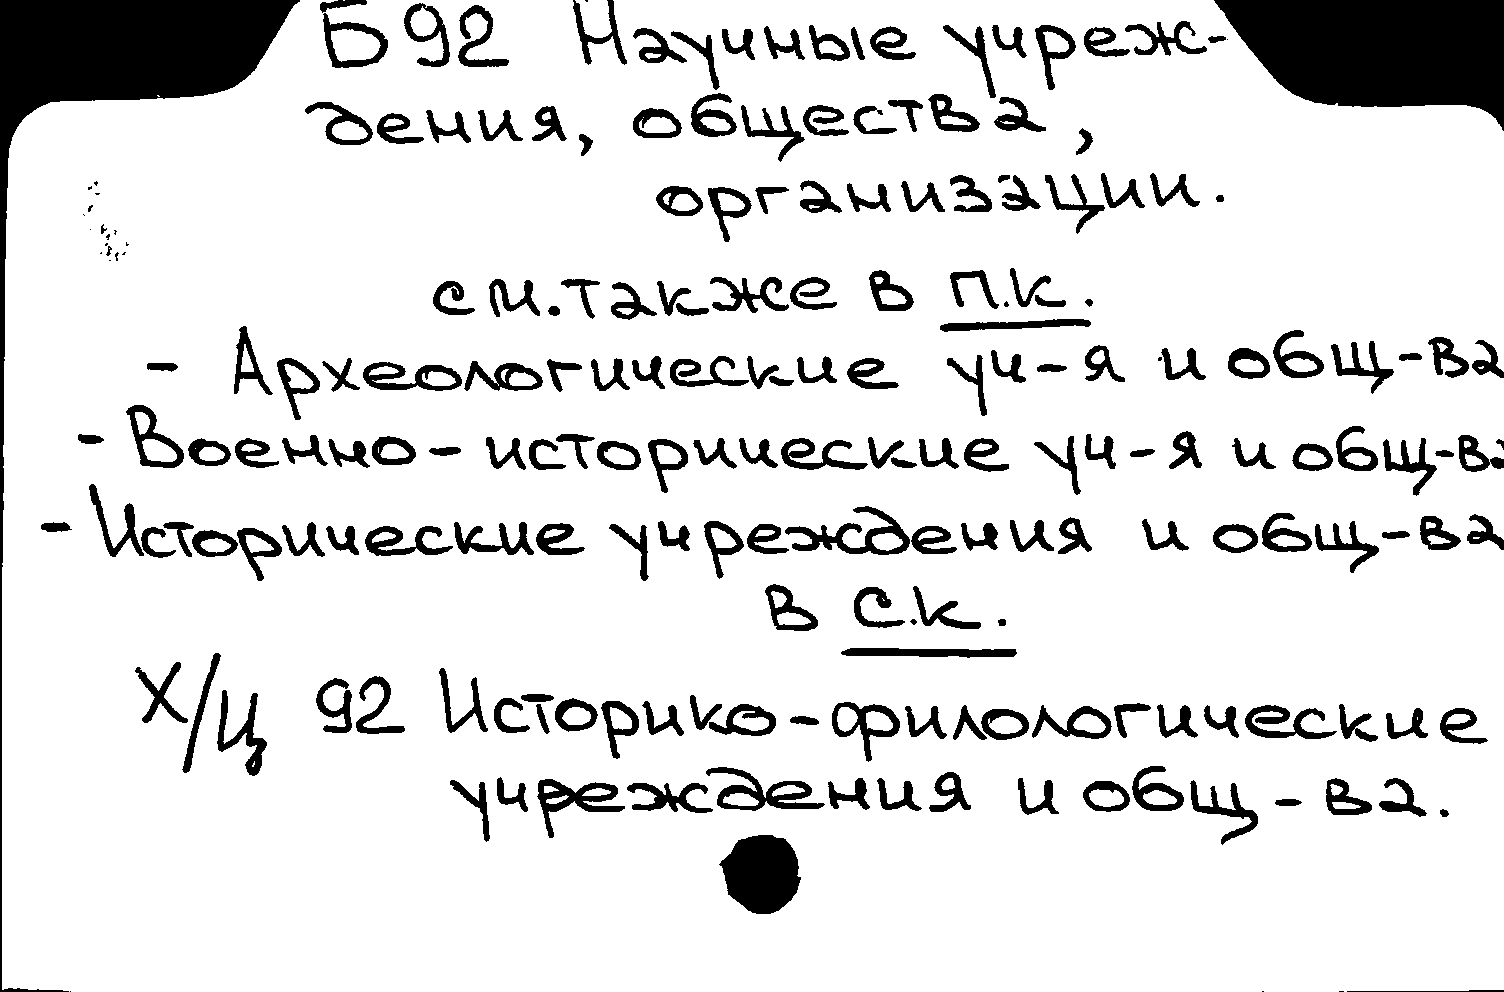 Б92 Научные учреж-
дения, общества,
организации.
см. также в п.к.
- Археологические уч-я и общ-ва
- Военно-исторические уч-я и общ-ва
- Исторические учреждения и общ-ва
в с.к.
Х/Ц 92 Историко-филологические
учреждения и общ-ва.